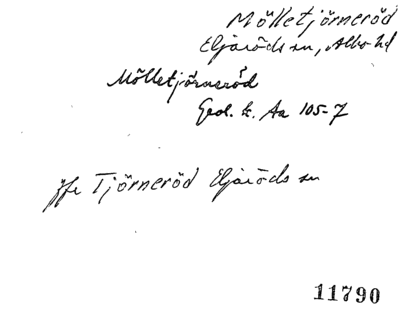 Mölletjörneröd
Eljaröds sn, Albo hd
Mölletjörneröd
Geol. k. Aa 105-7
jfr Tjörneröd Eljaröds sn
11790